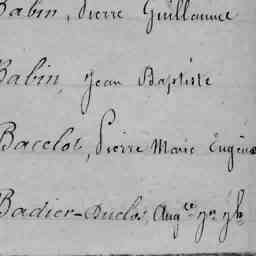 Babin, Pierre Guillaume
Babin, Jean Baptiste
Bacelot, Pierre Marie Eugène
Badier-Duclos, Aug.te